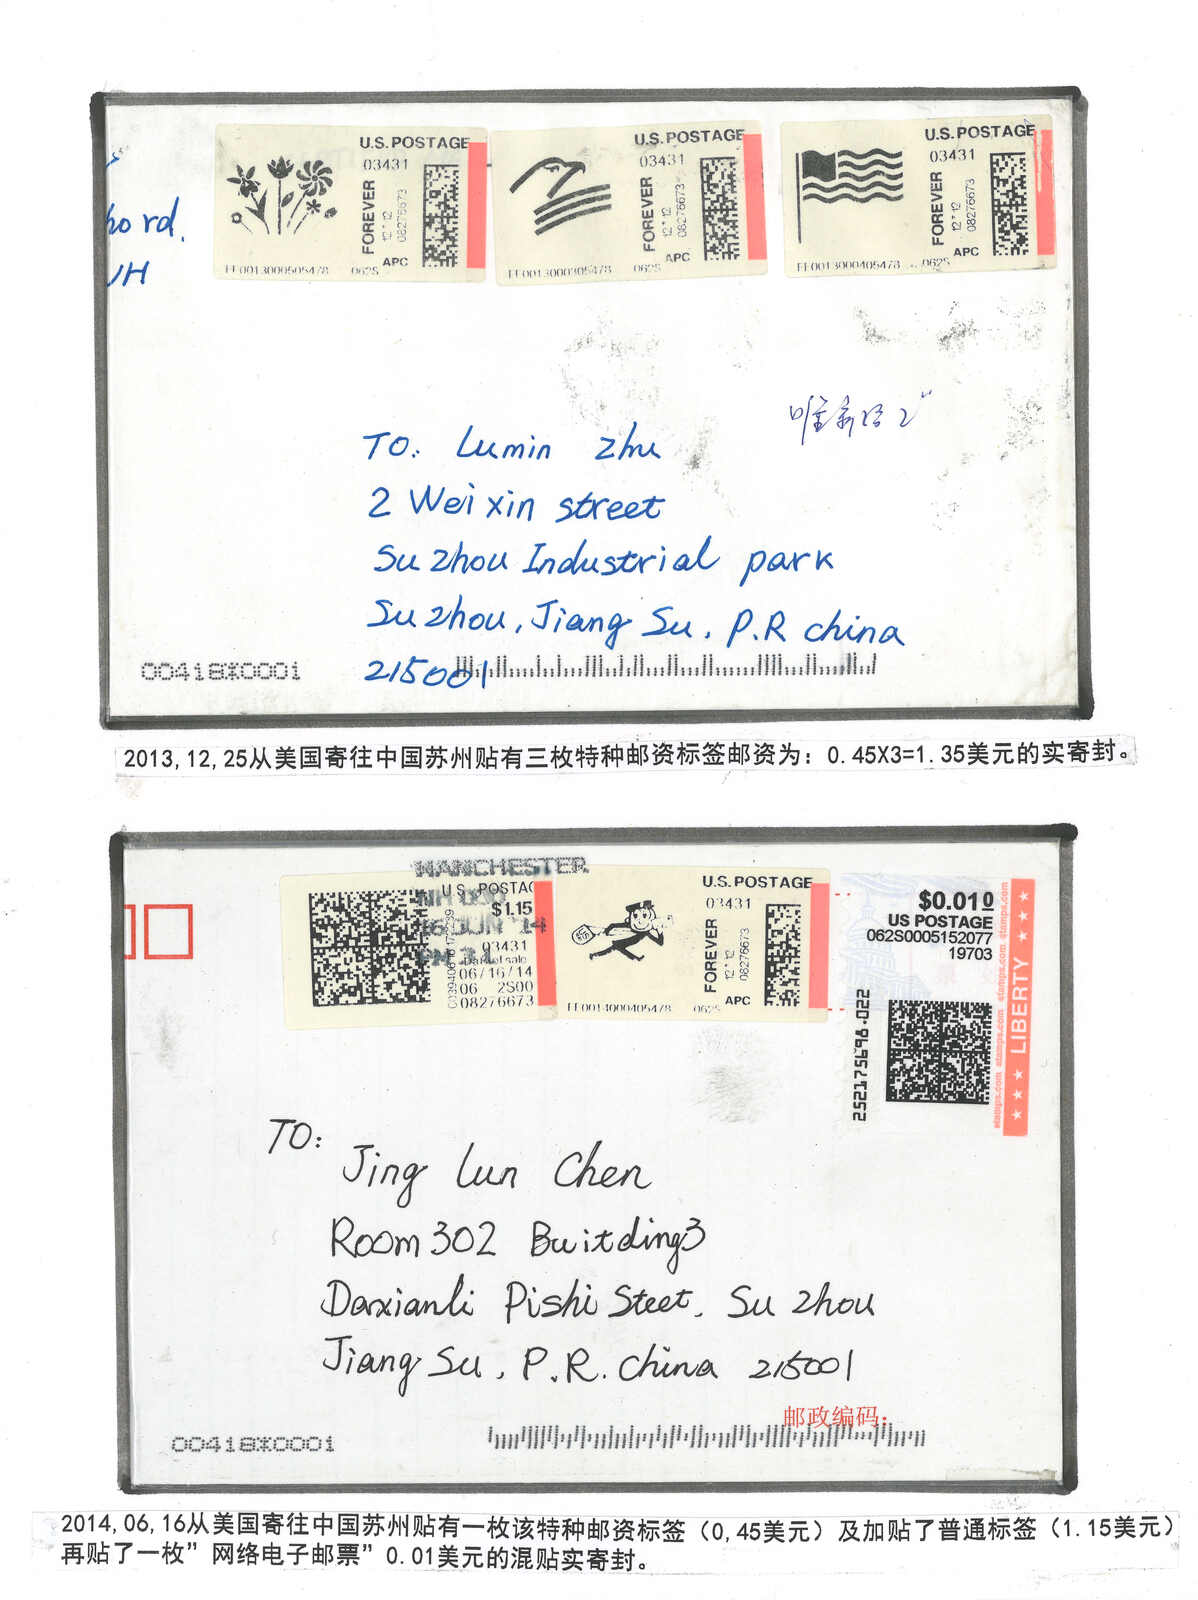 ord.
NH
U.S. POSTAGE
03431
FOREVER
12*12
08276673
APC
FF0013000505478 062S
U.S. POSTAGE
03431
FOREVER
12*12
08276673
APC
FF0013000305478 062S
U.S. POSTAGE
03431
FOREVER
12*12
08276673
APC
FF0013000405478 062S
TO: Lumin Zhu
2 Weixin street
Suzhou Industrial park
Suzhou, Jiang Su, P.R china
215001
00418*0001
2013,12,25从美国寄往中国苏州贴有三枚特种邮资标签邮资为：0.45X3=1.35美元的实寄封。
MANCHESTER
NH 030
16 JUN '14
PM 3 L
U.S. POSTAG
$1.15
03431
06/16/14
06 2S00
08276673
U.S. POSTAGE
03431
FOREVER
12*12
08276673
APC
FF0014000405478 062S
$0.010
US POSTAGE
062S0005152077
19703
252175696-022
stamps.com stamps.com stamps.com stamps.com
LIBERTY
TO:
Jing Lun Chen
Room 302 Buitding3
Daxianli Pishi Steet, Su Zhou
Jiang Su, P.R. China 215001
邮政编码：
00418*0001
2014,06,16从美国寄往中国苏州贴有一枚该特种邮资标签（0,45美元）及加贴了普通标签（1.15美元）
再贴了一枚”网络电子邮票”0.01美元的混贴实寄封。